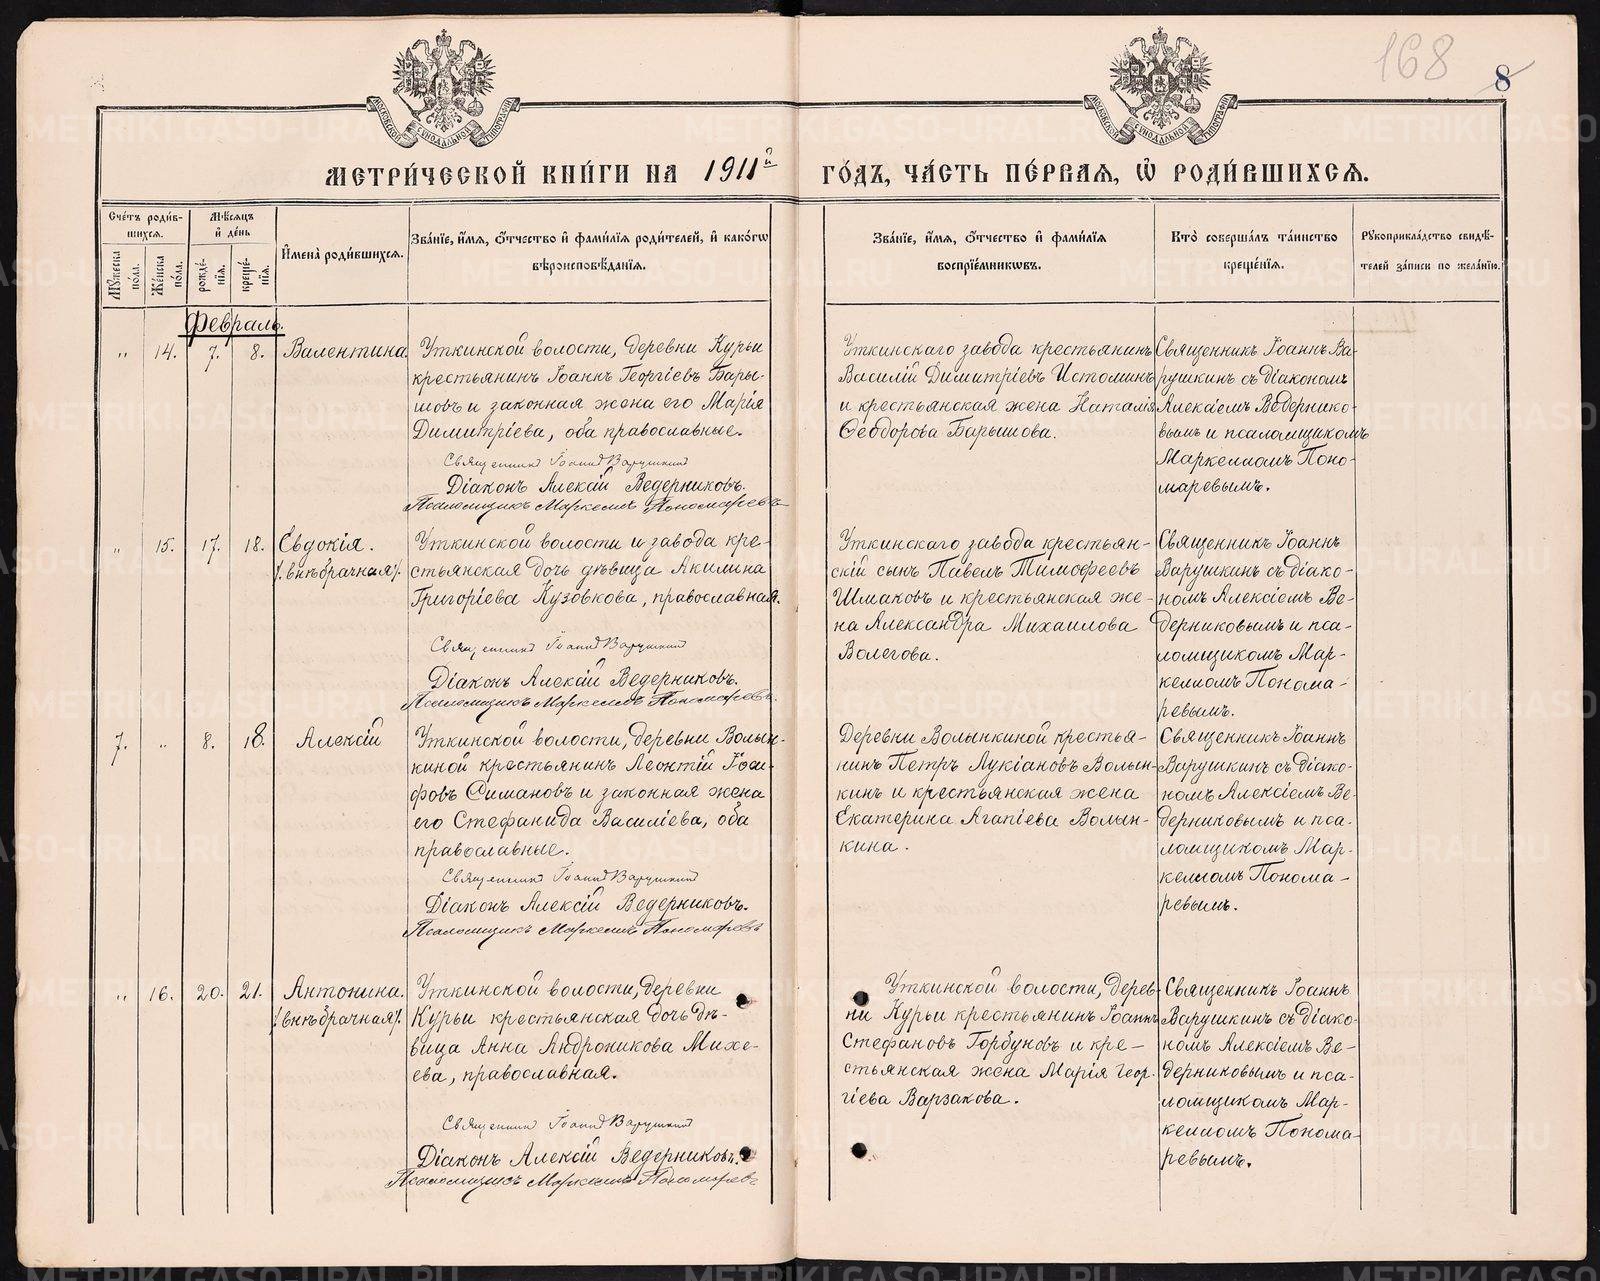 168
8
МОСКОВСКОЙ СѴНОДАЛЬНОЙ ТИПОГРАФІИ
МОСКОВСКОЙ СѴНОДАЛЬНОЙ ТИПОГРАФІИ
МЕТРИ́ЧЕСКОЙ КНИ́ГИ НА 1911й ГО́ДЪ, ЧА́СТЬ ПЕ́РВАЯ, Ѡ РОДИ́ВШИХСЯ.
Сче́тъ роди́в-
шихся.
Му́жеска по́ла.
Же́нска по́ла.
Мѣ́сяцъ
и де́нь
рожде́-
нія.
креще́-
нія.
Имена̀ роди́вшихся.
Зва́нїе, и́мя, о́тчество и фами́лїя роди́телей, и како́гѡ
вѣроисповѣ́данїя.
Зва́нїе, и́мя, о́тчество и фами́лїя
воспрїе́мникѡвъ.
Кто̀ соверша́лъ та́инство
креще́нїя.
Рꙋкоприкла́дство свидѣ́-
телей за́писи по жела́нїю.
Февраль.
" 14. 7. 8. Валентина.
Уткинской волости, деревни Курьи
крестьянинъ Іоаннъ Георгіевъ Бары-
шовъ и законная жена его Марія
Димитріева, оба православные.
Священникъ Іоаннъ Варушкинъ
Діаконъ Алексій Ведерниковъ.
Псаломщикъ Маркеллъ Пономаревъ
Уткинскаго завода крестьянинъ
Василій Димитріевъ Истоминъ
и крестьянская жена Наталія
Ѳеодорова Барышова.
Священникъ Іоаннъ Ва-
рушкинъ съ діакономъ
Алексіемъ Ведернико-
вымъ и псаломщикомъ
Маркелломъ Поно-
маревымъ.
" 15. 17. 18. Евдокія.
/.внѣбрачная/.
Уткинской волости и завода кре-
стьянская дочь дѣвица Акилина
Григоріева Кузовкова, православная.
Священникъ Іоаннъ Варушкинъ
Діаконъ Алексій Ведерниковъ.
Псаломщикъ Маркеллъ Пономаревъ.
Уткинскаго завода крестьян-
скій сынъ Павелъ Тимофеевъ
Шмаковъ и крестьянская же-
на Александра Михаилова
Волегова.
Священникъ Іоаннъ
Варушкинъ съ діако-
номъ Алексіемъ Ве-
дерниковымъ и пса-
ломщикомъ Мар-
келломъ Понома-
ревымъ.
7. " 8. 18. Алексій
Уткинской волости, деревни Волын-
киной крестьянинъ Леонтій Іоси-
фовъ Симановъ и законная жена
его Стефанида Василіева, оба
православные.
Священникъ Іоаннъ Варушкинъ
Діаконъ Алексій Ведерниковъ.
Псаломщикъ Маркеллъ Пономаревъ
Деревни Волынкиной крестья-
нинъ Петръ Лукіановъ Волын-
кинъ и крестьянская жена
Екатерина Агапіева Волын-
кина.
Священникъ Іоаннъ
Варушкинъ съ діако-
номъ Алексіемъ Ве-
дерниковымъ и пса-
ломщикомъ Мар-
келломъ Понома-
ревымъ.
" 16. 20. 21. Антонина.
/.внѣбрачная/.
Уткинской волости, деревни
Курьи крестьянская дочь дѣ-
вица Анна Андроникова Михе-
ева, православная.
Священникъ Іоаннъ Варушкинъ
Діаконъ Алексій Ведерниковъ.
Псаломщикъ Маркеллъ Пономаревъ
Уткинской волости, дерев-
ни Курьи крестьянинъ Іоаннъ
Стефановъ Горбуновъ и кре-
стьянская жена Марія Геор-
гіева Варзакова.
Священникъ Іоаннъ
Варушкинъ съ діако-
номъ Алексіемъ Ве-
дерниковымъ и пса-
ломщикомъ Мар-
келломъ Понома-
ревымъ.
METRIKI.GASO-URAL.RU